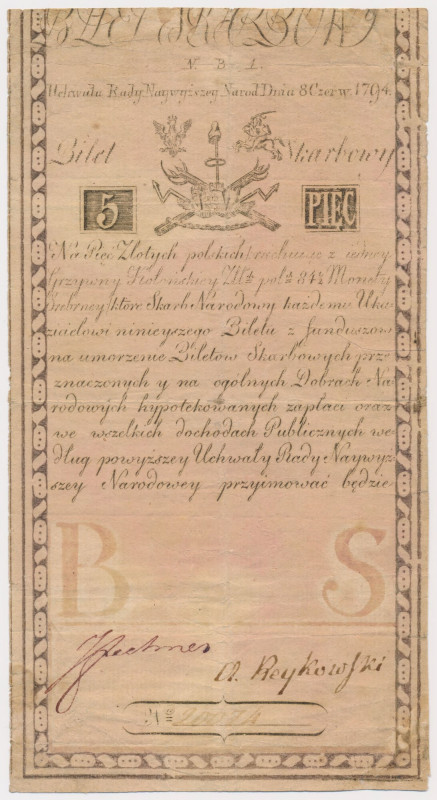 BILET SKARBOWY
N. B. 1.
Uchwała Rady Naywyższey Narod: Dnia 8 Czerw. 1794.
Bilet Skarbowy
5 PIĘĆ
Na Pięć Złotych polskich rachuiąc z iedney
Grzywny Kolońskiey Złł: pol: 84½ Monety
Srebrney które Skarb Narodowy każdemu Uka-
zicielowi ninieyszego Biletu z funduszow
na umorzenie Biletow Skarbowych prze-
znaczonych y na ogólnych Dobrach Na-
rodowych hypotekowanych zapłaci oraz
we wszelkich dochodach Publicznych we-
dług powyższey Uchwały Rady Naywyż-
szey Narodowey przyimować będzie
B S
A. Reykowski
No